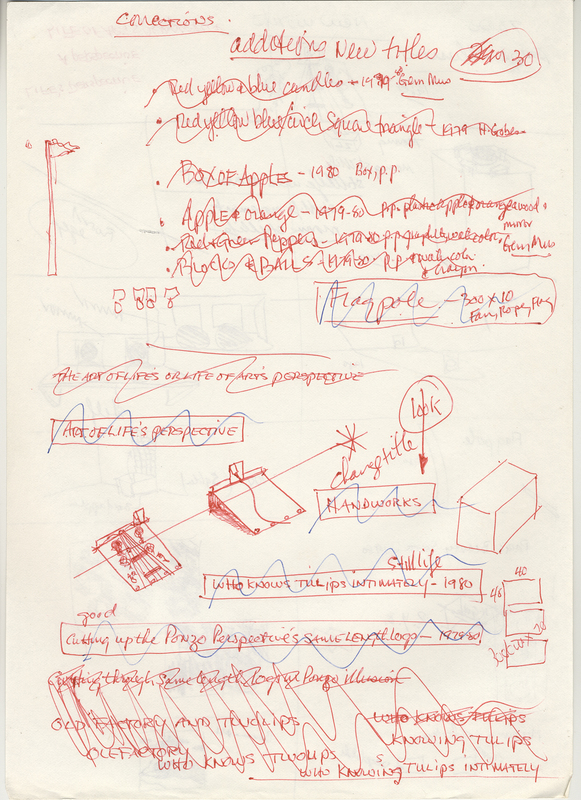 Collections.
additions New titles 30
Red yellow & blue candles - 1979 Gem Mus
Red yellow blue/circle square triangle - 1979
BOX OF Apples - 1980 Box, p.p.
Apple & orange - 1979-80 p.p. plastic apple & orange wood & mirror
Red & Green Peppers - 1979-80 p.p. watercolor, Gem Mus
BLOCKS & BALLS - 1979-80 p.p. & watercolor & crayon
Flagpole - 300 x 10
Fan, Rope, Flag
THE ART OF LIFE'S OR LIFE OF ART'S PERSPECTIVE
look
ART OF LIFE'S PERSPECTIVE
change title
HANDWORKS
Still life
WHO KNOWS TULIPS INTIMATELY - 1980
40
46
good
Cutting up the PONZO PERSPECTIVE'S SAME LENGTH Logo - 1979-80
Cutting through, Same length Logo Ponzo illusion
OLD FACTORY AND TWOLIPS
WHO KNOWS TULIPS
KNOWING TULIPS
OLEFACTORY
WHO KNOWS TWOLIPS
WHO KNOWING TULIPS INTIMATELY